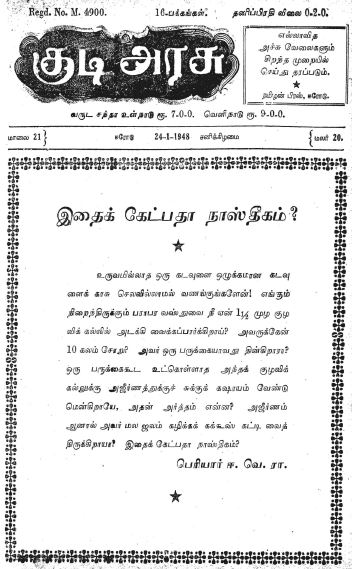 Regd. No. M. 4900.
16-பக்கங்கள்.
தனிப்பிரதி விலை 0-2-0.
குடி அரசு
எல்லாவித
அச்சு வேலைகளும்
சிறந்த முறையில்
செய்து தரப்படும்.
தமிழன் பிரஸ், ஈரோடு.
வருட சந்தா உள்நாடு ரூ. 7-0-0. வெளிநாடு ரூ. 9-0-0.
மாலை 21
ஈரோடு 24-1-1948 சனிக்கிழமை
மலர் 20.
இதைக் கேட்பதா நாஸ்தீகம்?
உருவமில்லாத ஒரு கடவுளை ஒழுக்கமான கடவு
ளைக் காசு செலவில்லாமல் வணங்குங்களேன்! எங்கும்
நிறைந்திருக்கும் பராபர வஸ்துவை நீ ஏன் 1¼ முழ குழ
விக் கல்லில் அடக்கி வைக்கப்பார்க்கிறாய்? அவருக்கேன்
10 கலம் சோறு? அவர் ஒரு பருக்கையாவது தின்கிறாரா?
ஒரு பருக்கைகூட உட்கொள்ளாத அந்தக் குழவிக்
கல்லுக்கு அஜீர்ணத்துக்குச் சுக்குக் கஷாயம் வேண்டு
மென்கிறாயே, அதன் அர்த்தம் என்ன? அஜீர்ணம்
ஆனால் அவர் மல ஜலம் கழிக்கக் கக்கூஸ் கட்டி வைத்
திருக்கிறாயா? இதைக் கேட்பதா நாஸ்திகம்?
பெரியார் ஈ. வெ. ரா.